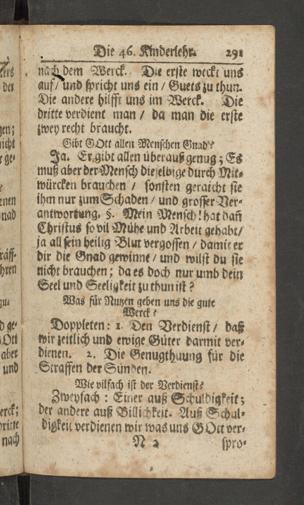 Die 46. Kinderlehr. 291
nach dem Werck. Die erste weckt uns
auf / und spricht uns ein / Guets zu thun.
Die andere hilfft uns im Werck. Die
dritte verdient man / da man die erste
zwey recht braucht.
Gibt GOtt allen Menschen Gnad?
Ja. Er gibt allen überauß genug; Es
muß aber der Mensch dieselbige durch Mit-
würcken brauchen / sonsten geraicht sie
ihm nur zum Schaden / und grosser Ver-
antwortung. §. Mein Mensch! hat dan
Christus so vil Mühe und Arbeit gehabt /
ja all sein heilig Blut vergossen / damit er
dir die Gnad gewinne / und wilst du sie
nicht brauchen; da es doch nur umb dein
Seel und Seeligkeit zu thun ist?
Was für Nutzen geben uns die gute
Werck?
Doppleten: 1. Den Verdienst / daß
wir zeitlich und ewige Güter darmit ver-
dienen. 2. Die Genugthuung für die
Straffen der Sünden.
Wie vilfach ist der Verdienst?
Zweyfach: Einer auß Schuldigkeit;
der andere auß Billichkeit. Auß Schul-
digkeit verdienen wir was uns GOtt ver-
N 2 spro-